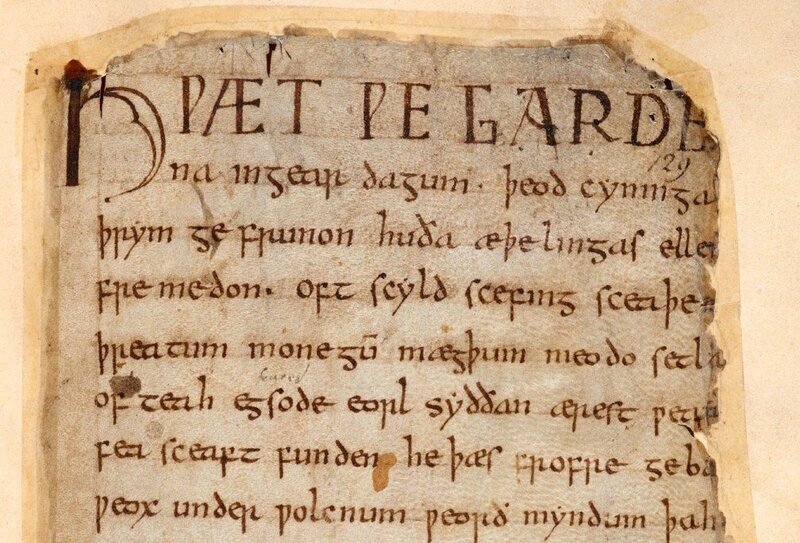 HǷÆT ǷE GARDE
129
na ingear dagum · þeod cyninga
þrym ge frunon huða æþelingas elle
fremedon · oft scyld scefing sceaþe
þreatum monegū mægþum meodo setla
of teah egsode eorl syððan ærest
fea sceaft funden he þæs frofre geba
ƿeox under ƿolcnum ƿeorð myndum þah